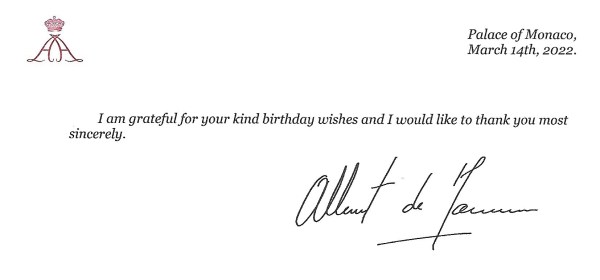 Palace of Monaco,
March 14th, 2022.
I am grateful for your kind birthday wishes and I would like to thank you most
sincerely.
Albert de